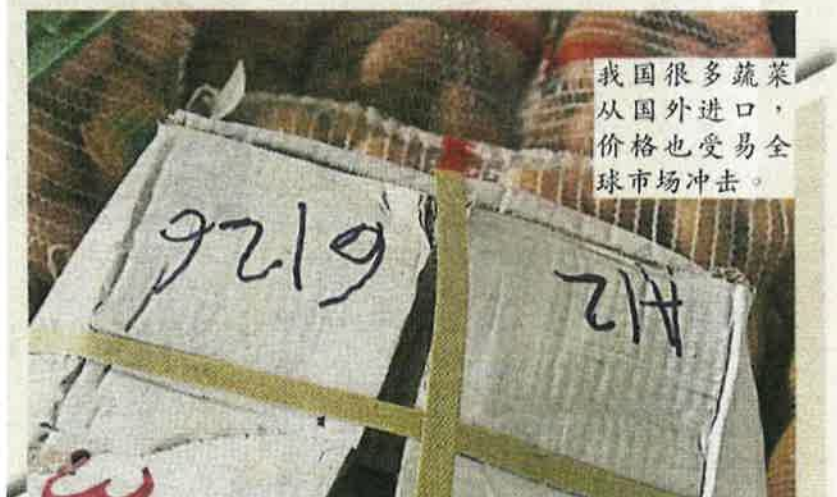 我国很多蔬菜
从国外进口，
价格也受易全
球市场冲击。
A12